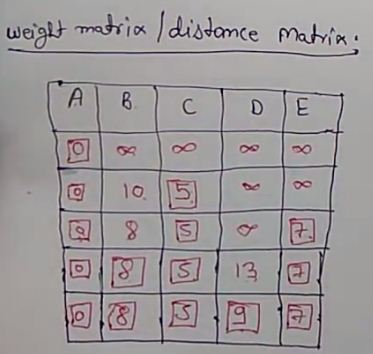 weight matrix / distance Matrix.
A B C D E
0 ∞ ∞ ∞ ∞
0 10 5 ∞ ∞
0 8 5 ∞ 7
0 8 5 13 7
0 8 5 9 7